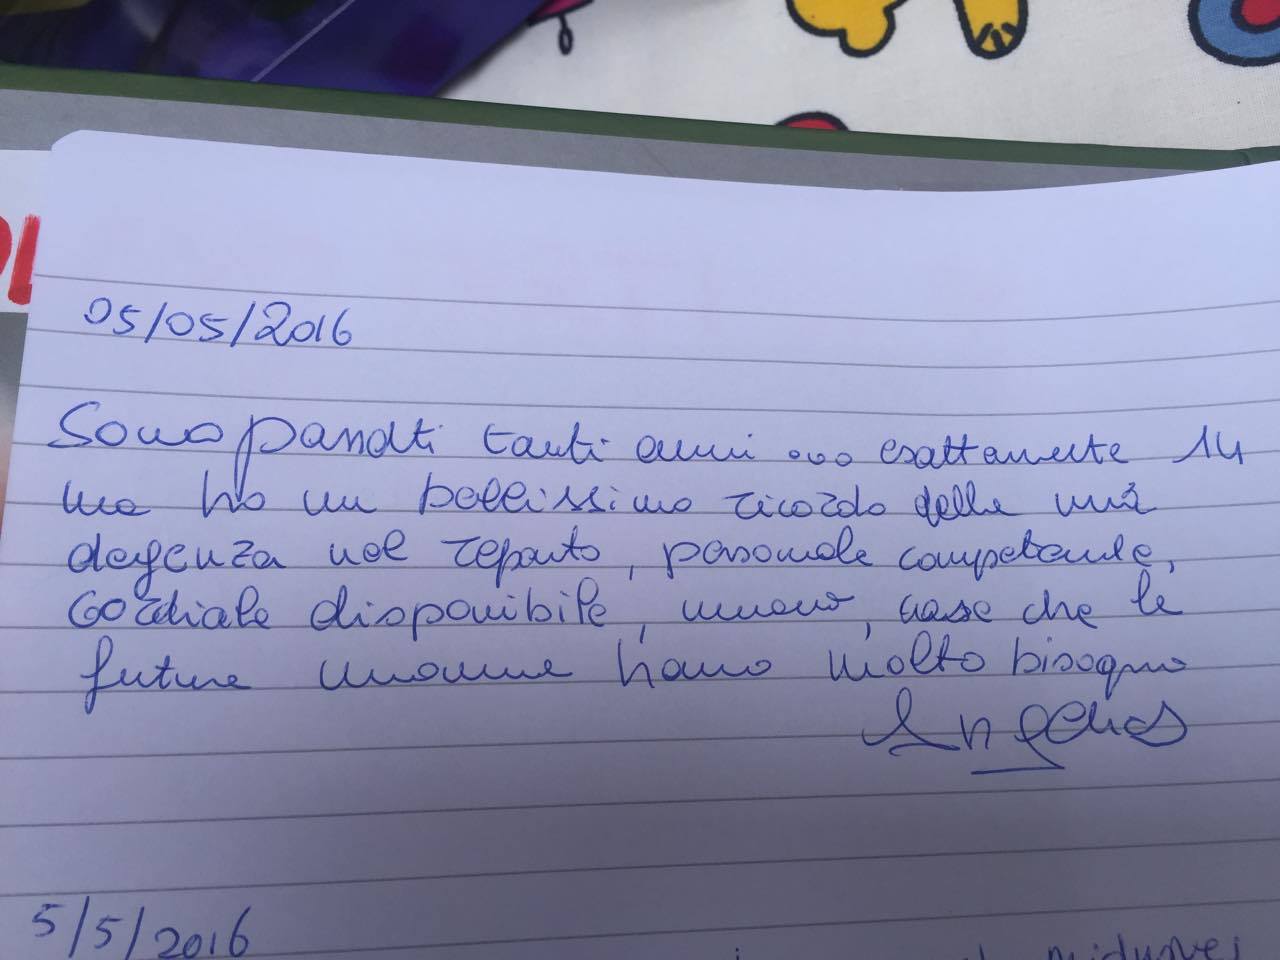 05/05/2016
Sono passati tanti anni ... esattamente 14
ma ho un bellissimo ricordo della mia
degenza nel reparto, personale competente,
cordiale disponibile, umano, cose che le
future mamme hanno molto bisogno
5/5/2016